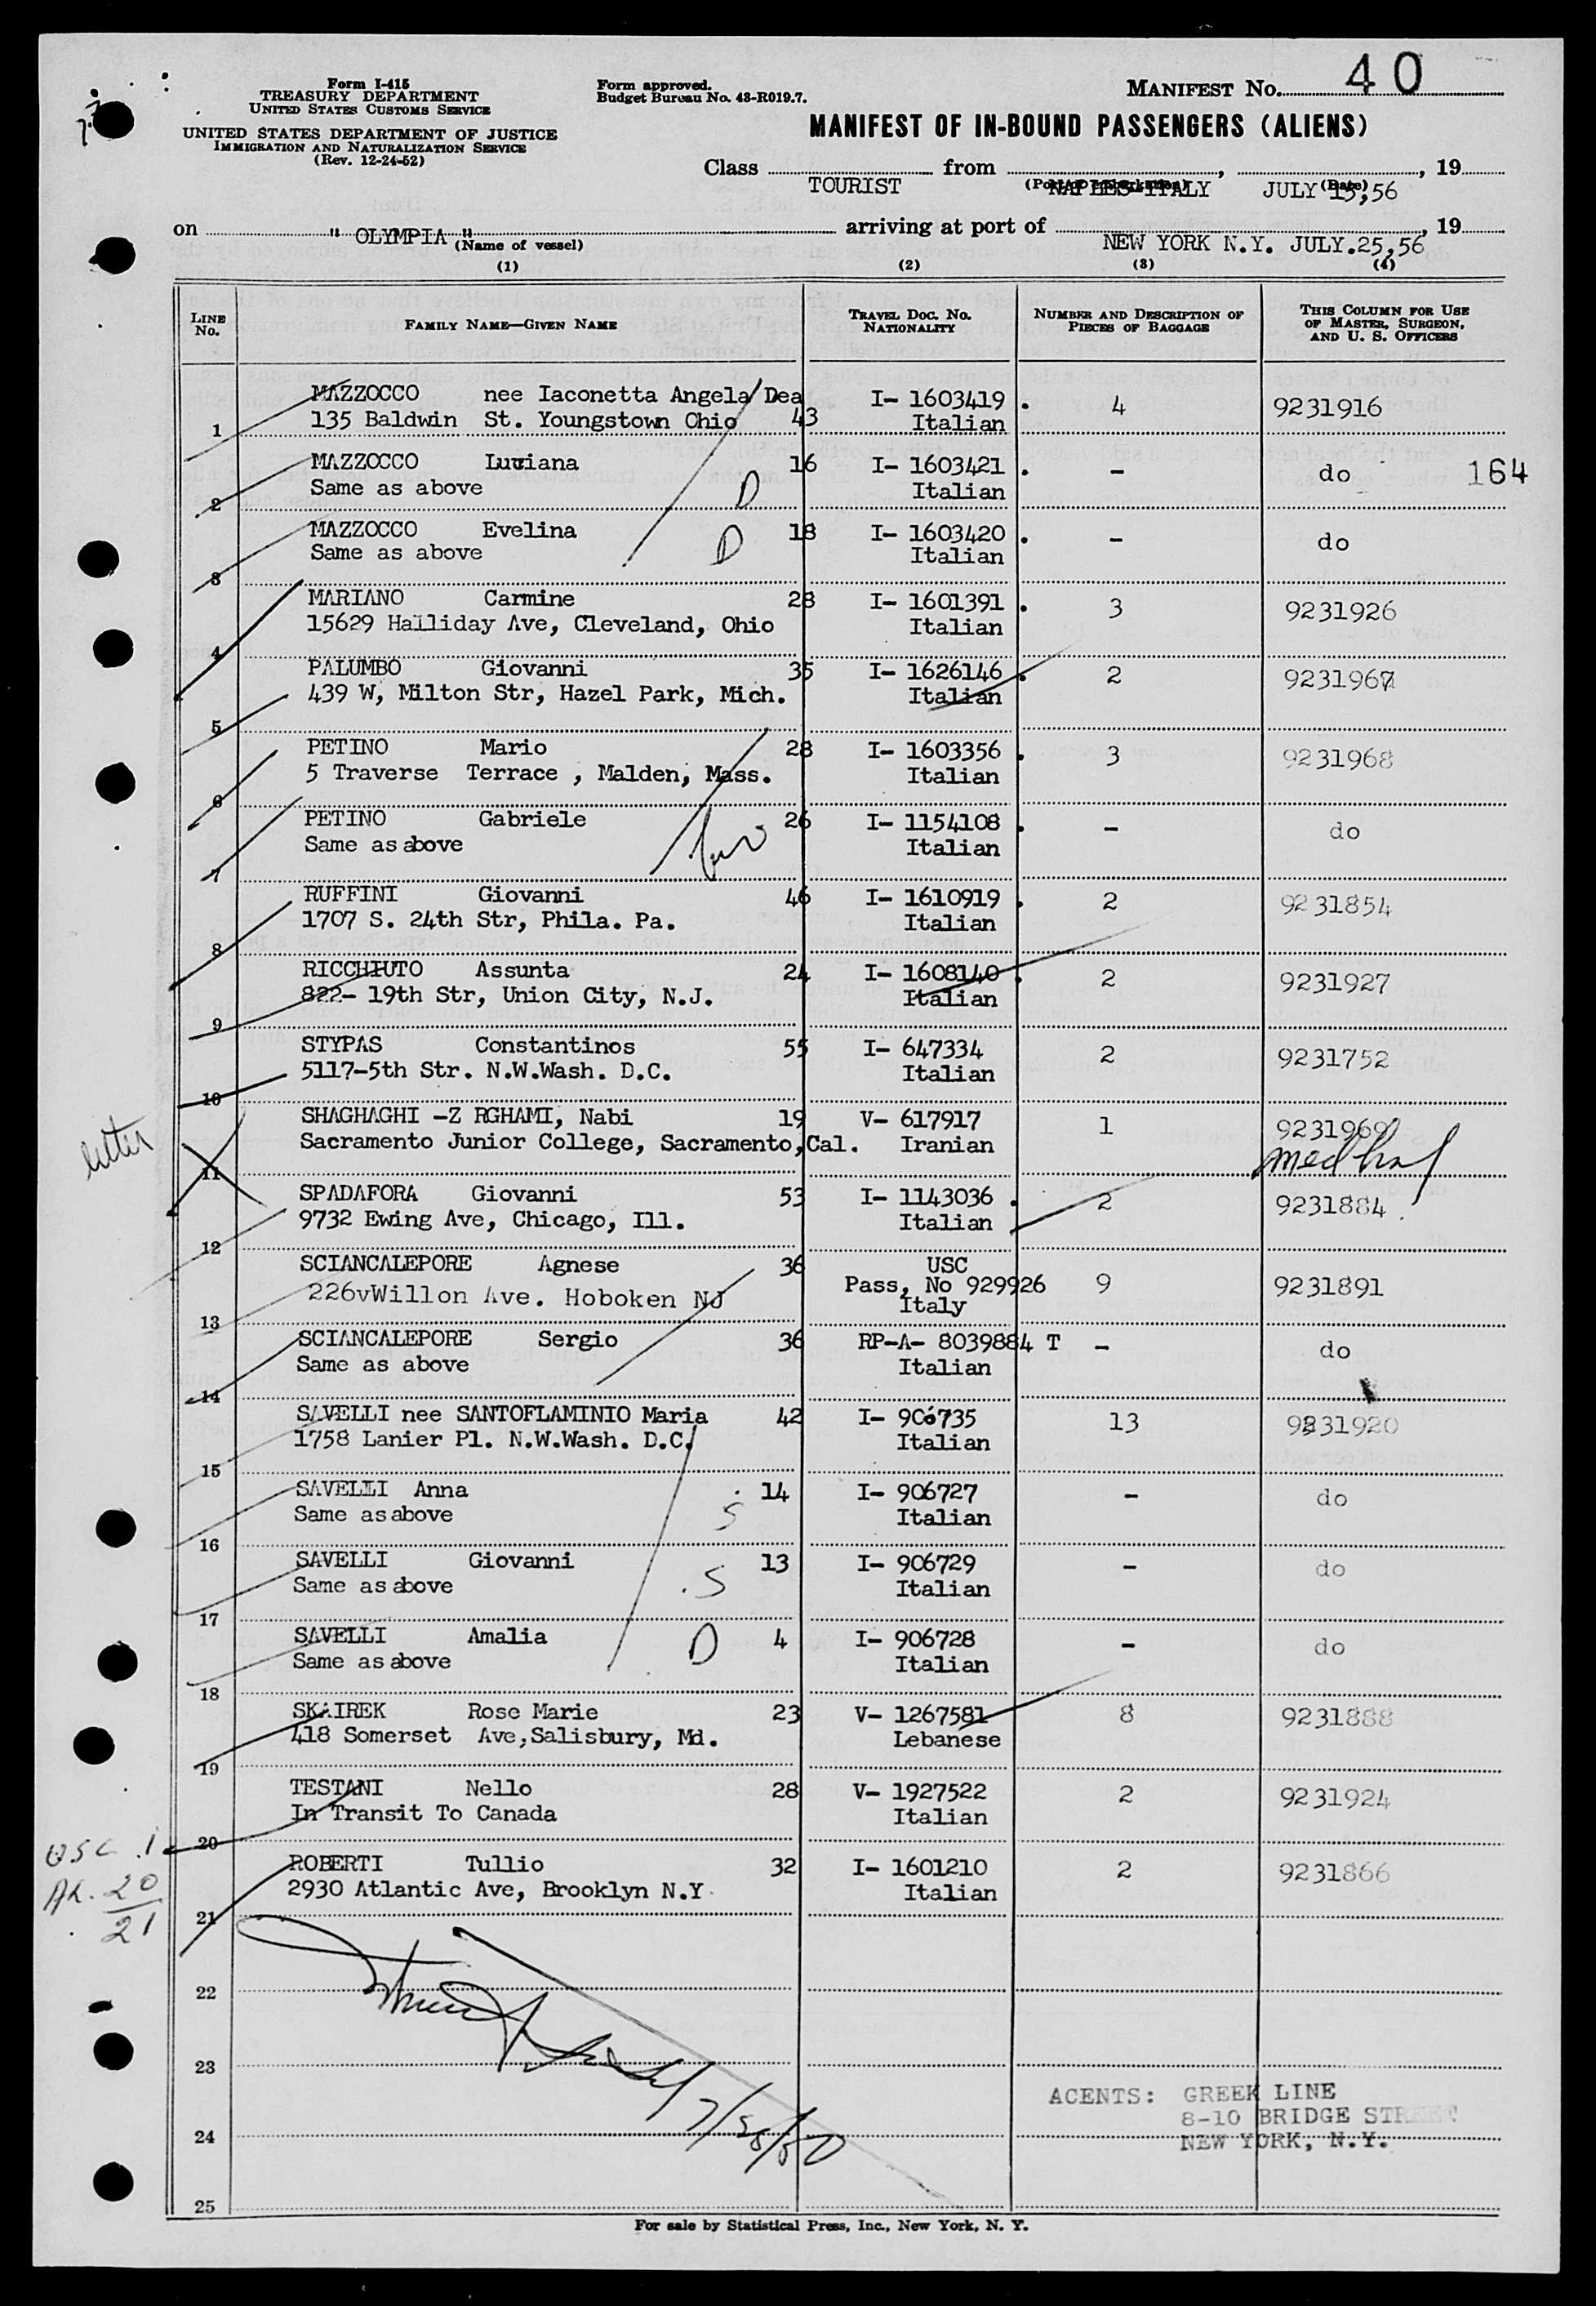 Form I-415
TREASURY DEPARTMENT
UNITED STATES CUSTOMS SERVICE
UNITED STATES DEPARTMENT OF JUSTICE
IMMIGRATION AND NATURALIZATION SERVICE
(Rev. 12-24-52)
Form approved.
Budget Bureau No. 43-R019.7.
MANIFEST No. 40
MANIFEST OF IN-BOUND PASSENGERS (ALIENS)
Class TOURIST from NAPLES ITALY JULY 15,56, 19
(Port of embarkation) (Date)
on " OLYMPIA " arriving at port of NEW YORK N.Y. JULY.25,56, 19
(Name of vessel)
(1) (2) (3) (4)
LINE No. FAMILY NAME—GIVEN NAME TRAVEL DOC. No. NATIONALITY NUMBER AND DESCRIPTION OF PIECES OF BAGGAGE THIS COLUMN FOR USE OF MASTER, SURGEON, AND U. S. OFFICERS
MAZZOCCO nee Iaconetta Angela Dea I- 1603419 . 4 9231916
1 135 Baldwin St. Youngstown Ohio 43 Italian
MAZZOCCO Luviana 16 I- 1603421 . - do 164
2 Same as above D Italian
MAZZOCCO Evelina 18 I- 1603420 . - do
3 Same as above D Italian
MARIANO Carmine 28 I- 1601391 . 3 9231926
4 15629 Halliday Ave, Cleveland, Ohio Italian
PALUMBO Giovanni 35 I- 1626146 . 2 9231967
5 439 W, Milton Str, Hazel Park, Mich. Italian
PETINO Mario 28 I- 1603356 . 3 9231968
6 5 Traverse Terrace , Malden, Mass. Italian
PETINO Gabriele 26 I- 1154108 . - do
7 Same as above Italian
RUFFINI Giovanni 46 I- 1610919 . 2 9231854
8 1707 S. 24th Str, Phila. Pa. Italian
RICCHIUTO Assunta 24 I- 1608140 . 2 9231927
9 822- 19th Str, Union City, N.J. Italian
STYPAS Constantinos 55 I- 647334 2 9231752
10 5117-5th Str. N.W.Wash. D.C. Italian
letter
SHAGHAGHI -Z RGHAMI, Nabi 19 V- 617917 1 9231969
11 Sacramento Junior College, Sacramento,Cal. Iranian
SPADAFORA Giovanni 53 I- 1143036 . 2 9231884 .
12 9732 Ewing Ave, Chicago, Ill. Italian
SCIANCALEPORE Agnese 36 USC
Pass, No 929926 9 9231891
13 226vWillon Ave. Hoboken NJ Italy
SCIANCALEPORE Sergio 36 RP-A- 8039884 T - do
14 Same as above Italian
SAVELLI nee SANTOFLAMINIO Maria 42 I- 906735 13 9231920
15 1758 Lanier Pl. N.W.Wash. D.C. Italian
SAVELLI Anna 14 I- 906727 - do
16 Same as above S Italian
SAVELLI Giovanni 13 I- 906729 - do
17 Same as above S Italian
SAVELLI Amalia 4 I- 906728 - do
18 Same as above D Italian
SKAIREK Rose Marie 23 V- 1267581 8 9231888
19 418 Somerset Ave,Salisbury, Md. Lebanese
TESTANI Nello 28 V- 1927522 2 9231924
20 In Transit To Canada Italian
USC 1
ROBERTI Tullio 32 I- 1601210 2 9231866
21 2930 Atlantic Ave, Brooklyn N.Y. Italian
20
21
22
23
24
25
ACENTS: GREEK LINE
8-10 BRIDGE STREET
NEW YORK, N.Y.
For sale by Statistical Press, Inc., New York, N. Y.